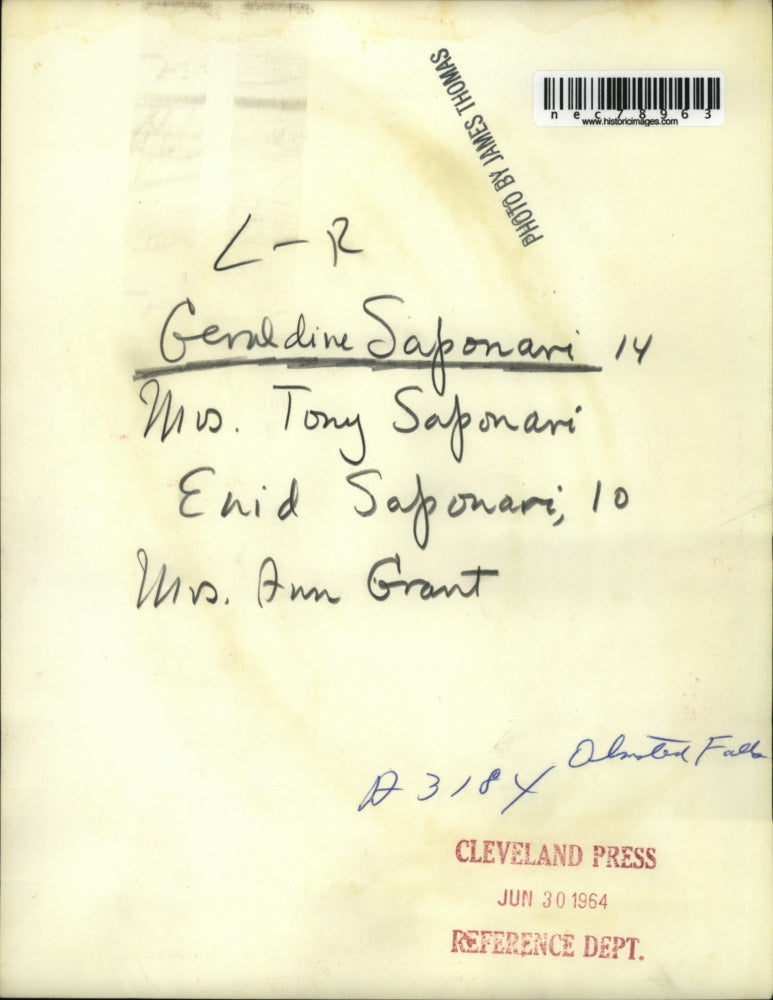 PHOTO BY JAMES THOMAS
nec78963
www.historicimages.com
L-R
Geraldine Saponari 14
Mrs. Tony Saponari
Enid Saponari, 10
Mrs. Ann Grant
Olmsted Falls
A 3184
CLEVELAND PRESS
JUN 30 1964
REFERENCE DEPT.